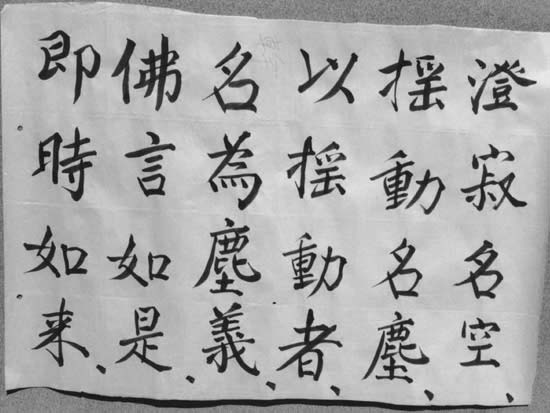 澄寂名空、
摇動名塵、
以摇動者、
名為塵義、
佛言如是、
即時如来、